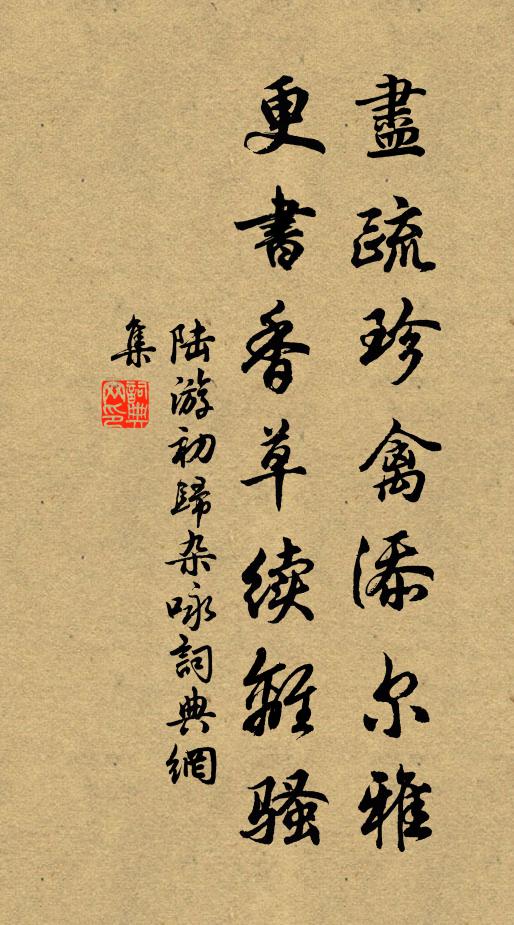 盡疏珍禽添尔雅
更書香草续離骚
陆游初歸杂咏詞典網
集
詞典网印